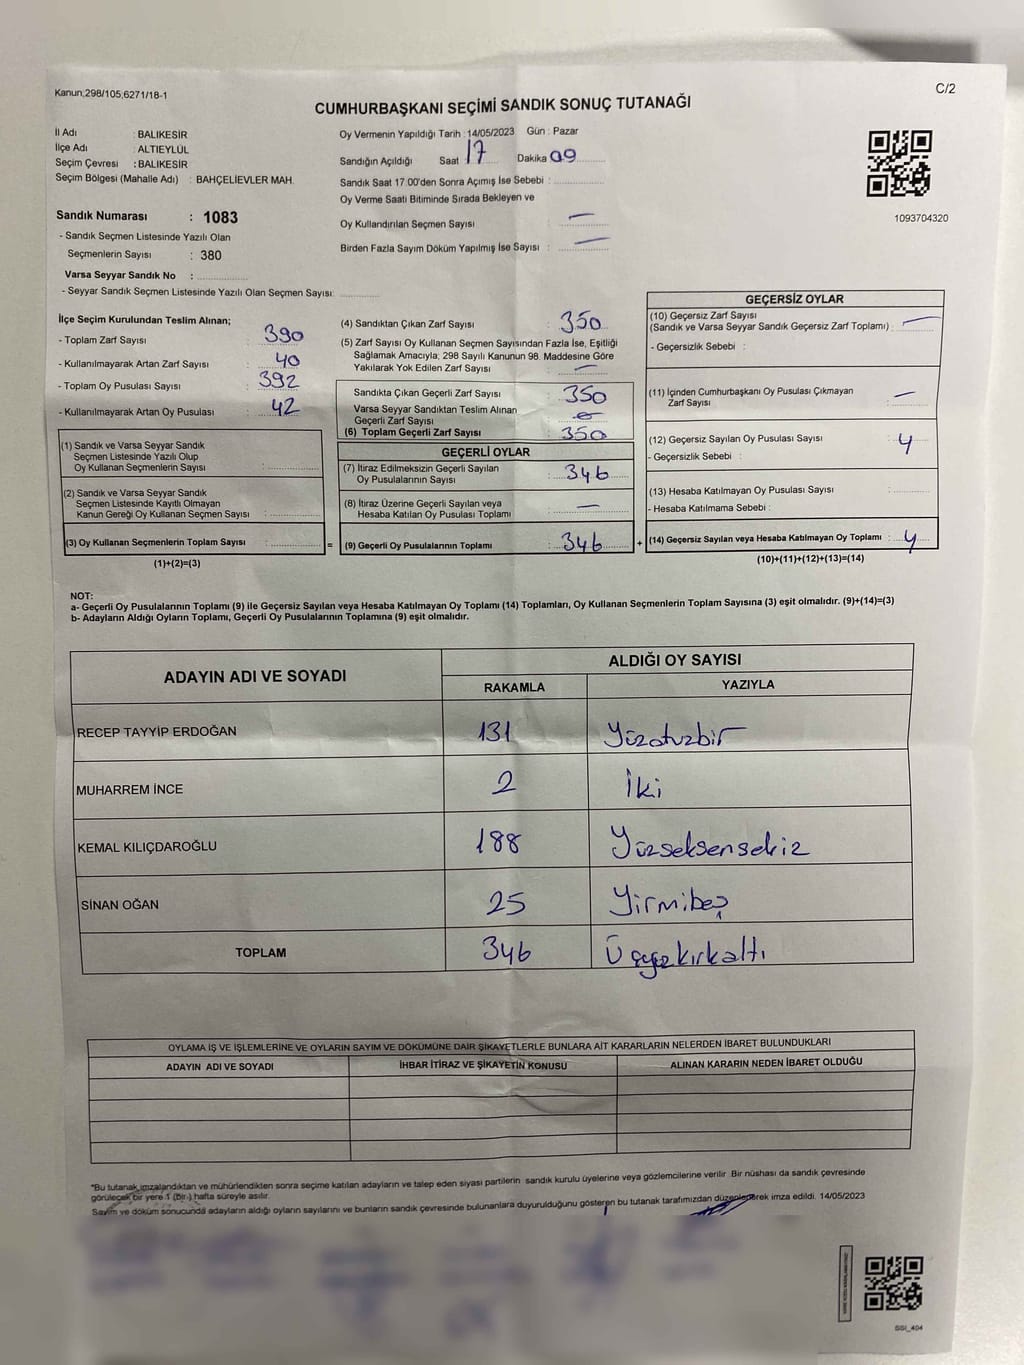 Kanun;298/105;6271/18-1
C/2
CUMHURBAŞKANI SEÇİMİ SANDIK SONUÇ TUTANAĞI
İl Adı : BALIKESİR
İlçe Adı : ALTIEYLÜL
Seçim Çevresi : BALIKESİR
Seçim Bölgesi (Mahalle Adı) : BAHÇELİEVLER MAH.
Oy Vermenin Yapıldığı Tarih : 14/05/2023 Gün : Pazar
Sandığın Açıldığı Saat 17 Dakika 09
Sandık Saat 17.00'den Sonra Açımış İse Sebebi :
Oy Verme Saati Bitiminde Sırada Bekleyen ve
Oy Kullandırılan Seçmen Sayısı : —
Birden Fazla Sayım Döküm Yapılmış İse Sayısı : —
1093704320
Sandık Numarası : 1083
- Sandık Seçmen Listesinde Yazılı Olan
Seçmenlerin Sayısı : 380
Varsa Seyyar Sandık No :
- Seyyar Sandık Seçmen Listesinde Yazılı Olan Seçmen Sayısı:
İlçe Seçim Kurulundan Teslim Alınan;
- Toplam Zarf Sayısı : 390
- Kullanılmayarak Artan Zarf Sayısı : 40
- Toplam Oy Pusulası Sayısı : 392
- Kullanılmayarak Artan Oy Pusulası : 42
(1) Sandık ve Varsa Seyyar Sandık
Seçmen Listesinde Yazılı Olup
Oy Kullanan Seçmenlerin Sayısı :
(2) Sandık ve Varsa Seyyar Sandık
Seçmen Listesinde Kayıtlı Olmayan
Kanun Gereği Oy Kullanan Seçmen Sayısı :
(3) Oy Kullanan Seçmenlerin Toplam Sayısı :
(1)+(2)=(3)
(4) Sandıktan Çıkan Zarf Sayısı : 350
(5) Zarf Sayısı Oy Kullanan Seçmen Sayısından Fazla İse, Eşitliği
Sağlamak Amacıyla; 298 Sayılı Kanunun 98. Maddesine Göre
Yakılarak Yok Edilen Zarf Sayısı : —
Sandıkta Çıkan Geçerli Zarf Sayısı : 350
Varsa Seyyar Sandıktan Teslim Alınan
Geçerli Zarf Sayısı :
(6) Toplam Geçerli Zarf Sayısı : 350
GEÇERLİ OYLAR
(7) İtiraz Edilmeksizin Geçerli Sayılan
Oy Pusulalarının Sayısı : 346
(8) İtiraz Üzerine Geçerli Sayılan veya
Hesaba Katılan Oy Pusulası Toplamı : —
= (9) Geçerli Oy Pusulalarının Toplamı : 346 +
GEÇERSİZ OYLAR
(10) Geçersiz Zarf Sayısı
(Sandık ve Varsa Seyyar Sandık Geçersiz Zarf Toplamı) : —
- Geçersizlik Sebebi :
(11) İçinden Cumhurbaşkanı Oy Pusulası Çıkmayan
Zarf Sayısı : —
(12) Geçersiz Sayılan Oy Pusulası Sayısı : 4
- Geçersizlik Sebebi :
(13) Hesaba Katılmayan Oy Pusulası Sayısı :
- Hesaba Katılmama Sebebi :
(14) Geçersiz Sayılan veya Hesaba Katılmayan Oy Toplamı : 4
(10)+(11)+(12)+(13)=(14)
NOT:
a- Geçerli Oy Pusulalarının Toplamı (9) ile Geçersiz Sayılan veya Hesaba Katılmayan Oy Toplamı (14) Toplamları, Oy Kullanan Seçmenlerin Toplam Sayısına (3) eşit olmalıdır. (9)+(14)=(3)
b- Adayların Aldığı Oyların Toplamı, Geçerli Oy Pusulalarının Toplamına (9) eşit olmalıdır.
ADAYIN ADI VE SOYADI
ALDIĞI OY SAYISI
RAKAMLA YAZIYLA
RECEP TAYYİP ERDOĞAN 131 Yüzotuzbir
MUHARREM İNCE 2 İki
KEMAL KILIÇDAROĞLU 188 Yüzseksensekiz
SİNAN OĞAN 25 Yirmibeş
TOPLAM 346 Üçyüzkırkaltı
OYLAMA İŞ VE İŞLEMLERİNE VE OYLARIN SAYIM VE DÖKÜMÜNE DAİR ŞİKAYETLERLE BUNLARA AİT KARARLARIN NELERDEN İBARET BULUNDUKLARI
ADAYIN ADI VE SOYADI İHBAR İTİRAZ VE ŞİKAYETİN KONUSU ALINAN KARARIN NEDEN İBARET OLDUĞU
*Bu tutanak imzalandıktan ve mühürlendikten sonra seçime katılan adayların ve talep eden siyasi partilerin sandık kurulu üyelerine veya gözlemcilerine verilir. Bir nüshası da sandık çevresinde
görülecek bir yere 1 (bir) hafta süreyle asılır.
Sayım ve döküm sonucunda adayların aldığı oyların sayılarını ve bunların sandık çevresinde bulunanlara duyurulduğunu gösteren bu tutanak tarafımızdan düzenlenerek imza edildi. 14/05/2023
SSI_404